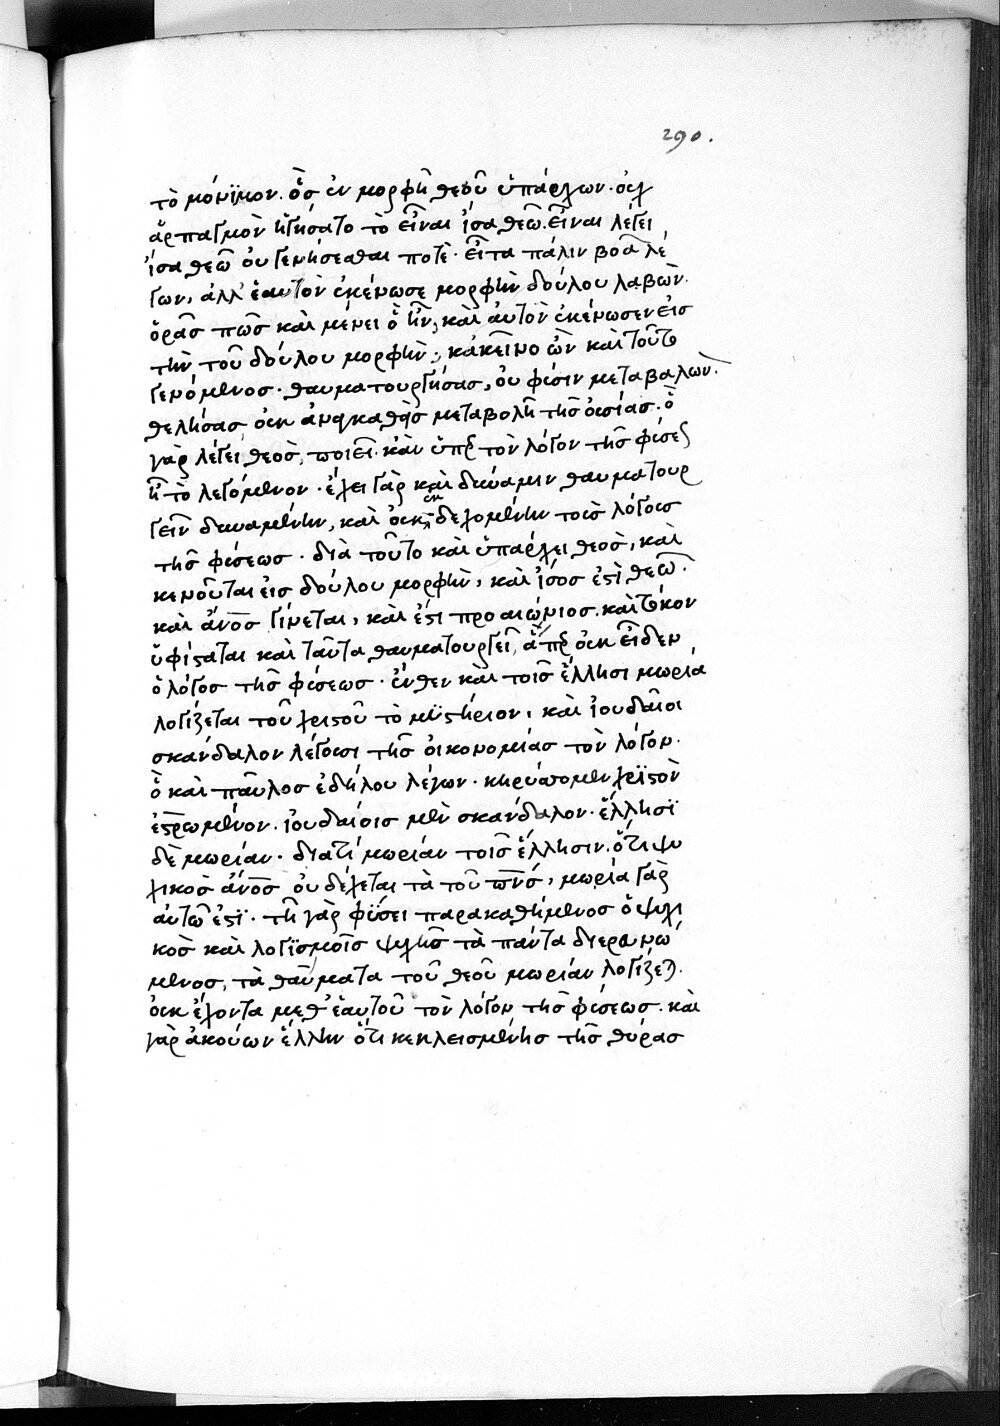 290.
τὸ μόνϊμον. ὃσ ἐν μορφῆ θεοῦ ὑπάρχων. οὐχ
ἁρπαγμὸν ἡγήσατο τὸ εἶναι ἴσα θεῶ. εἶναι λέγει
ἴσα θεῶ οὐ γενήσεσθαι ποτὲ. εἶτα πάλιν βοᾶ λέ
γων, ἀλλ' ἑαυτὸν ἐκένωσε μορφὴν δούλου λαβὼν.
ὅρασ πῶσ καὶ μένει ὃ ἦν, καὶ αὐτὸν ἐκένωσεν εἰσ
τὴν τοῦ δούλου μορφὴν; κἀκεῖνο ὢν καὶ τοῦτο
γενόμενοσ. θαυματουργήσασ, οὐ φύσιν μεταβαλὼν.
θελήσασ οὐκ ἀναγκασθεὶσ μεταβολῆ τῆσ οὐσίασ. ὃ
γὰρ λέγει θεὸσ, ποιεῖ. κἂν ὑπὲρ τὸν λόγον τῆσ φύσεωσ
ἦ τὸ λεγόμενον. ἔχει γὰρ καὶ δύναμιν θαυματουρ
γεῖν δυναμένην, καὶ οὐκ ἐνδεχομένην τοῖσ λόγοισ
τῆσ φύσεωσ. διὰ τοῦτο καὶ ὑπάρχει θεὸσ, καὶ
κενοῦται εἰσ δούλου μορφὴν, καὶ ἴσοσ ἐστὶ θεῶ.
καὶ ἄν̅ο̅σ̅ γίνεται, καὶ ἔστι προαιώνιοσ. καὶ τόκον
ὑφίσταται καὶ ταῦτα θαυματουργεῖ, ἅπερ οὐκ εἶδεν
ὁ λόγοσ τῆσ φύσεωσ. ἔνθεν καὶ τοῖσ ἕλλησι μωρία
λογίζεται τοῦ χριστοῦ τὸ μϋστήριον, καὶ ἰουδαῖοι
σκάνδαλον λέγουσι τῆσ οἰκονομίασ τὸν λόγον.
ὃ καὶ παῦλοσ ἐδήλου λέγων. κηρύσσομεν χρϊστὸν
ἐσ̅ρ̅ωμένον. ἰουδαίοισ μὲν σκάνδαλον. ἕλλησϊ
δὲ μωρίαν. διατί μωρίαν τοῖσ ἕλλησιν. ὅτι ψυ
χικὸσ ἄν̅ο̅σ̅ οὐ δέχεται τὰ τοῦ π̅ν̅σ̅, μωρία γὰρ
αὐτῶ ἐστϊ. τῆ γὰρ φύσει παρακαθήμενοσ ὁ ψυχι
κὸσ καὶ λογϊσμοῖσ ψυχῆσ τὰ πάντα διερευνώ
μενοσ, τὰ θαύματα τοῦ θεοῦ μωρίαν λογίζεται.
οὐκ ἔχοντα μεθ' ἑαυτοῦ τὸν λόγον τῆσ φύσεωσ. καὶ
γὰρ ἀκούων ἕλλην ὅτι κεκλεισμένησ τῆσ θύρασ